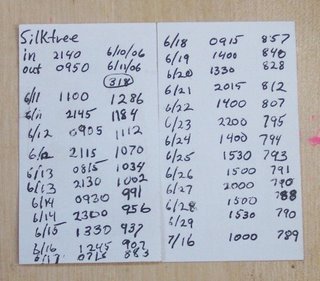 Silktree
in 2140 6/10/06
out 0950 6/11/06
318
6/11 1100 1286
6/11 2145 1184
6/12 0905 1112
6/12 2115 1070
6/13 0815 1034
6/13 2130 1002
6/14 0930 991
6/14 2300 956
6/15 1330 937
6/16 1245 907
6/17 0715 883
6/18 0915 857
6/19 1400 840
6/20 1330 828
6/21 2015 812
6/22 1400 807
6/23 2200 795
6/24 1400 794
6/25 1530 793
6/26 1500 791
6/27 2000 790
6/28 1500 788
6/29 1530 790
7/16 1000 789